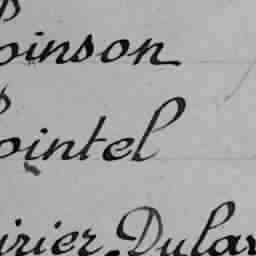 oinson
ointel
irier Dular